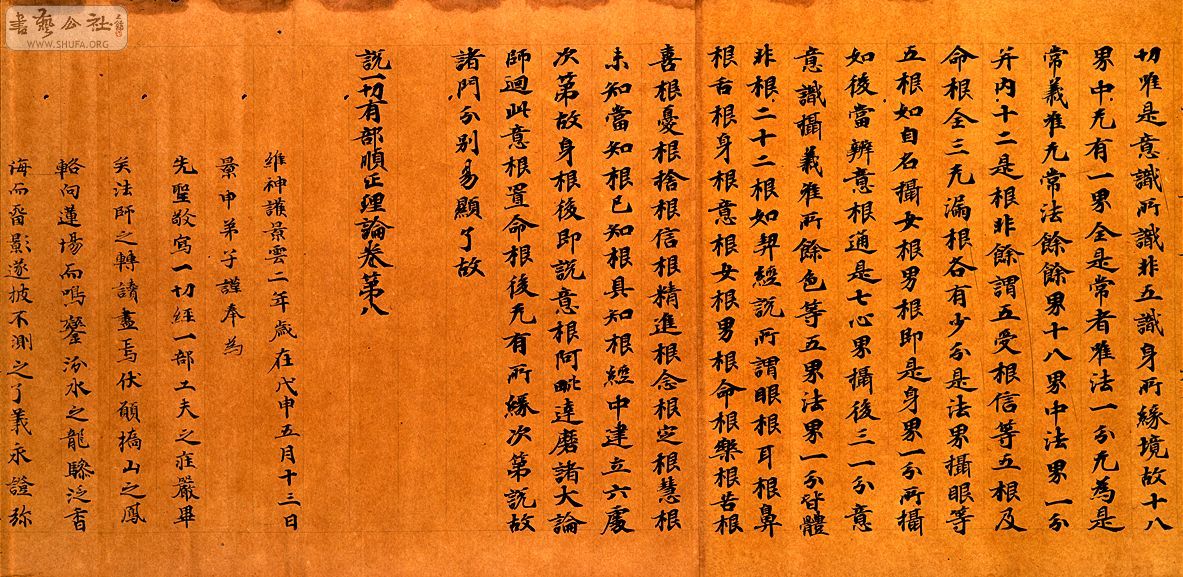 切唯是意識所識非五識身所緣境故十八
界中无有一界全是常者唯法一分无為是
常義准无常法餘餘界十八界中法界一分
并内十二是根非餘謂五受根信等五根及
命根全三无漏根各有少分是法界攝眼等
五根如自名攝女根男根即是身界一分所攝
如後當辨意根通是七心界攝後三一分意
意識攝義准所餘色等五界法界一分皆體
非根二十二根如契經說所謂眼根耳根鼻
根舌根身根意根女根男根命根樂根苦根
喜根憂根捨根信根精進根念根定根慧根
未知當知根已知根具知根經中建立六處
次第故身根後即說意根阿毗達磨諸大論
師迴此意根置命根後无有所緣次第說故
諸門分別易顯了故
說一切有部順正理論卷第八
維神護景雲二年歲在戊申五月十三日
景申弟子謹奉為
先聖敬寫一切經一部工夫之莊嚴畢
矣法師之轉讀盡焉伏願橋山之鳳
輅向蓮場而鳴鑾汾水之龍驂泛香
海而留影遂披不測之了義永證弥
書藝公社
WWW.SHUFA.ORG